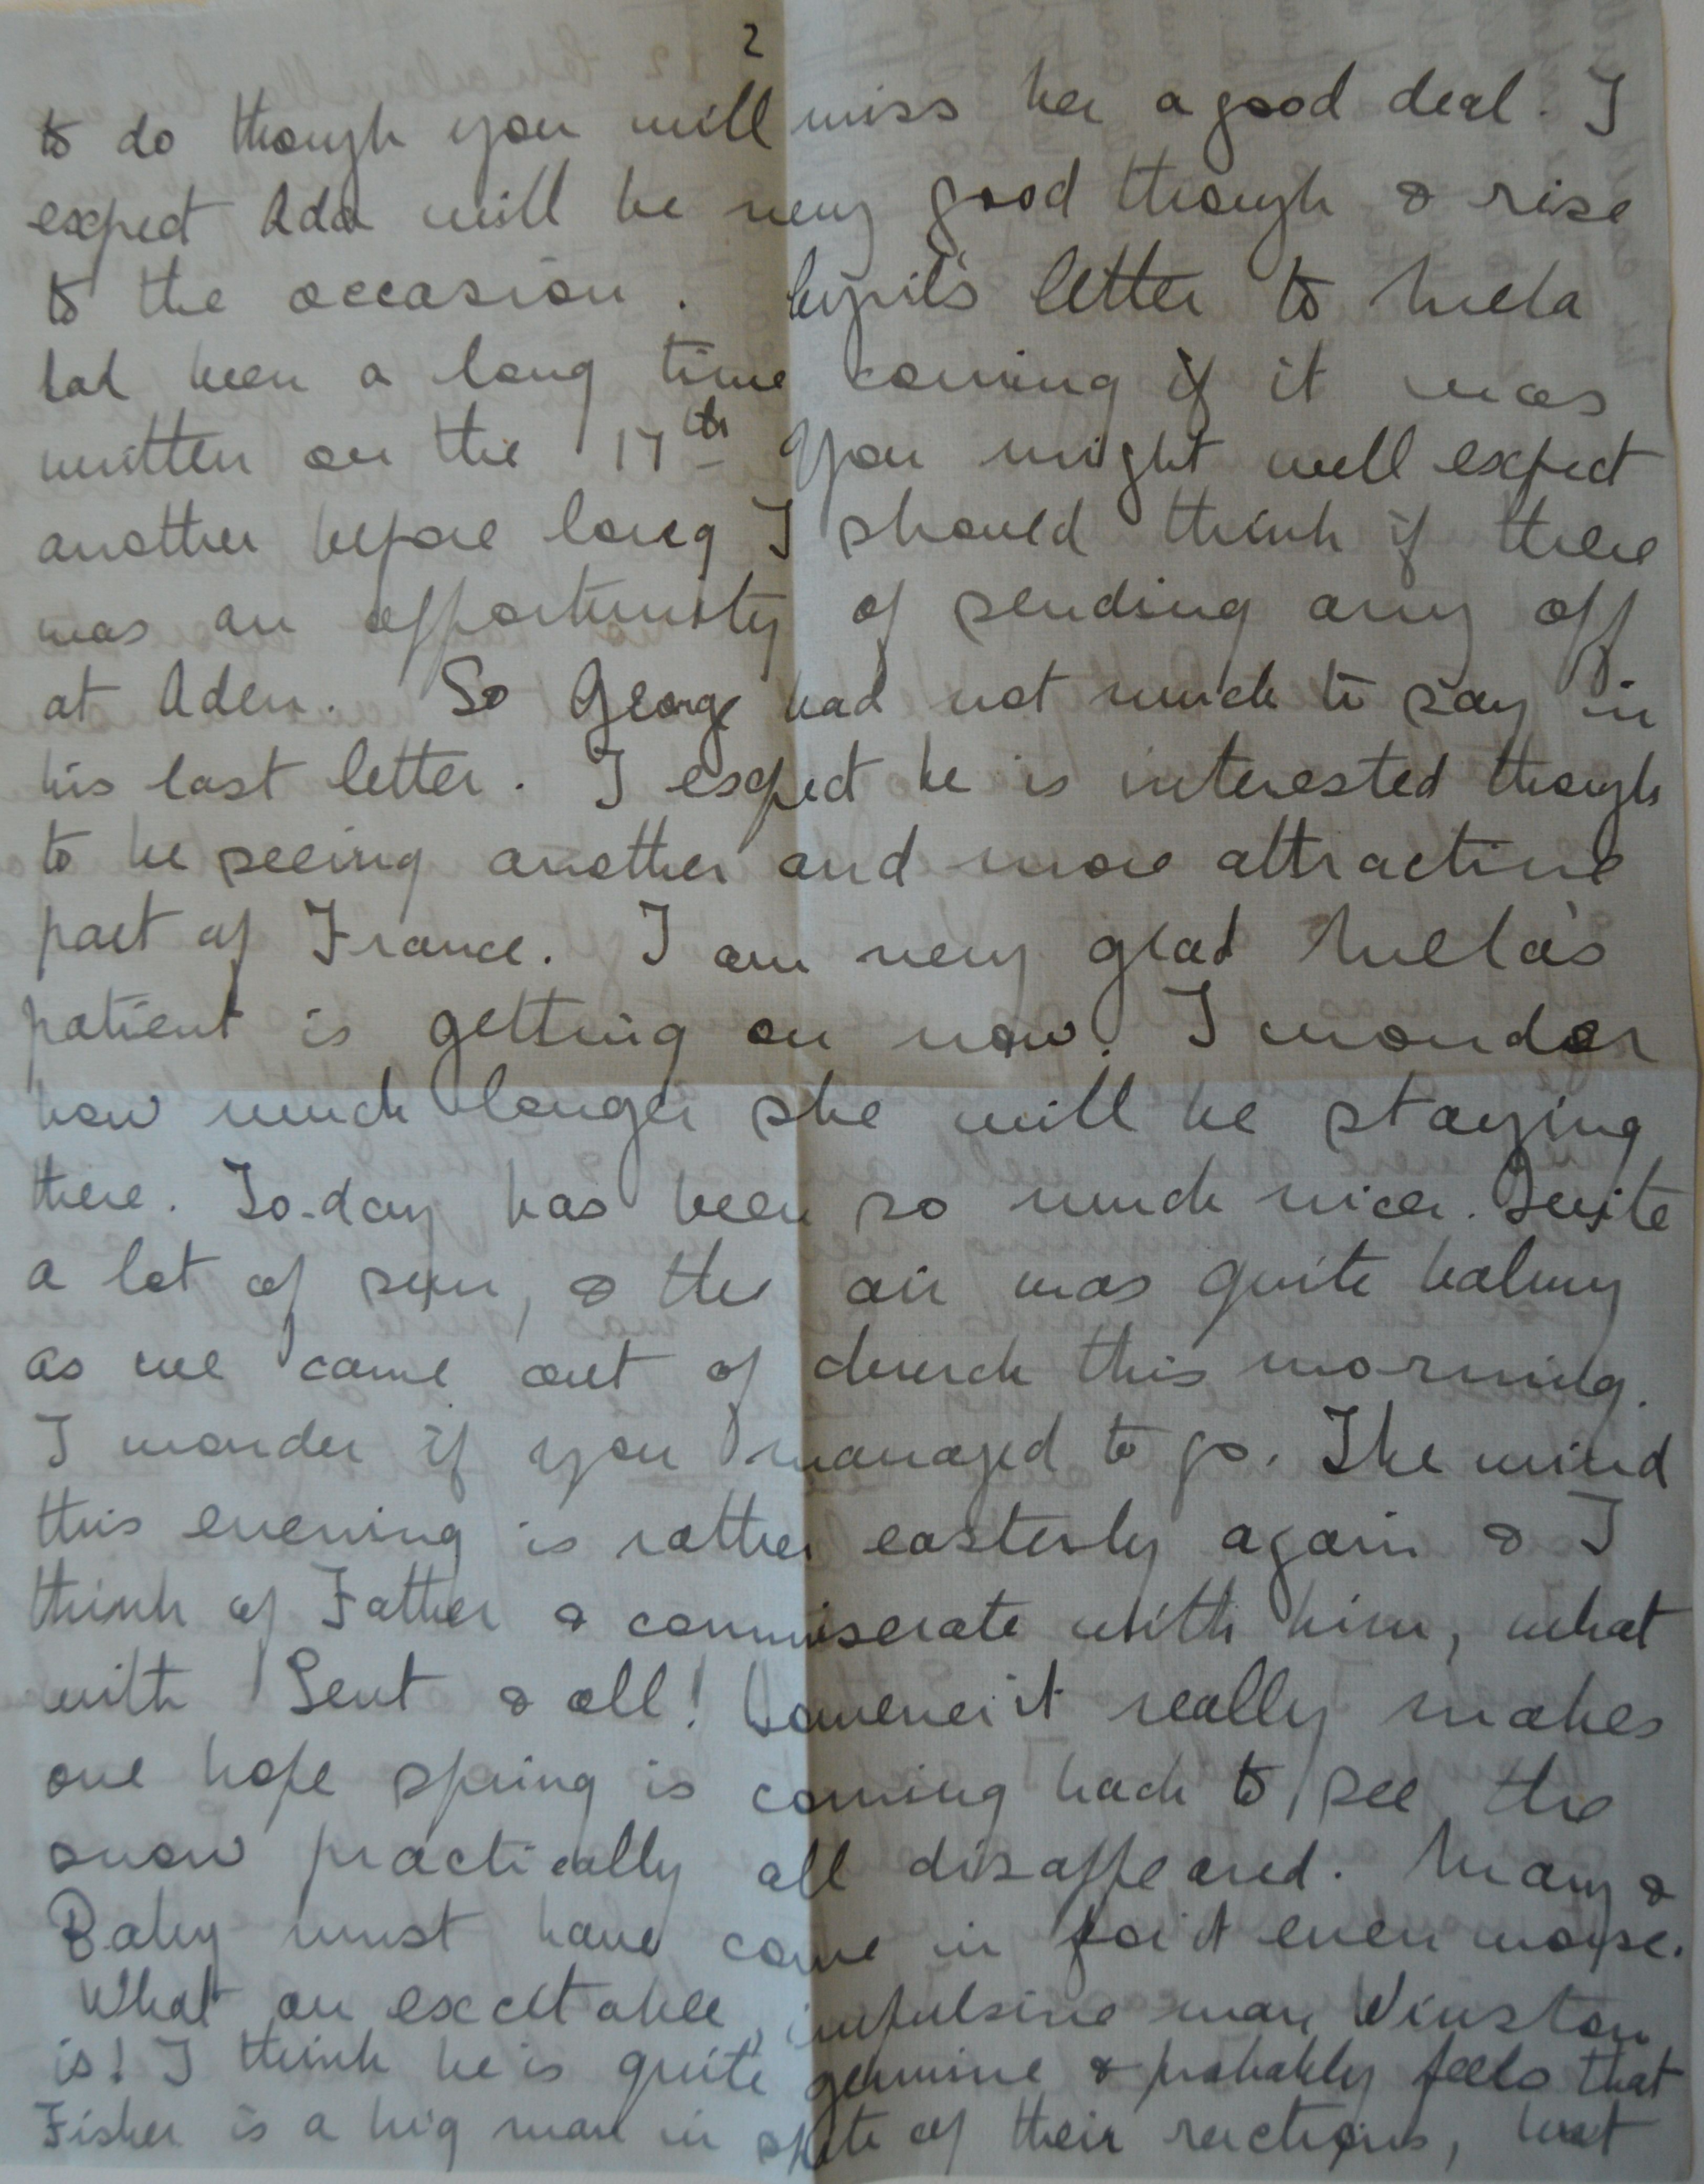 2
to do though you will miss her a good deal. I
expect Ada will be very good though & rise
to the occasion. Cyril's letter to Mela
had been a long time coming if it was
written on the 17th You might well expect
another before long I should think if there
was an opportunity of sending any off
at Aden. So George had not much to say in
his last letter. I expect he is interested though
to be seeing another and more attractive
part of France. I am very glad Mela's
patient is getting on now. I wonder
how much longer she will be staying
there. To-day has been so much nicer. Quite
a lot of sun, & the air was quite balmy
as we came out of church this morning.
I wonder if you managed to go. The wind
this evening is rather easterly again & I
think of Father & commiserate with him, what
with Lent & all! However it really makes
one hope spring is coming back to see the
snow practically all disappeared. Mary &
Baby must have come in for it even worse.
What an excitable, impulsive man Winston
is! I think he is quite genuine & probably feels that
Fisher is a big man in spite of their ructions, but